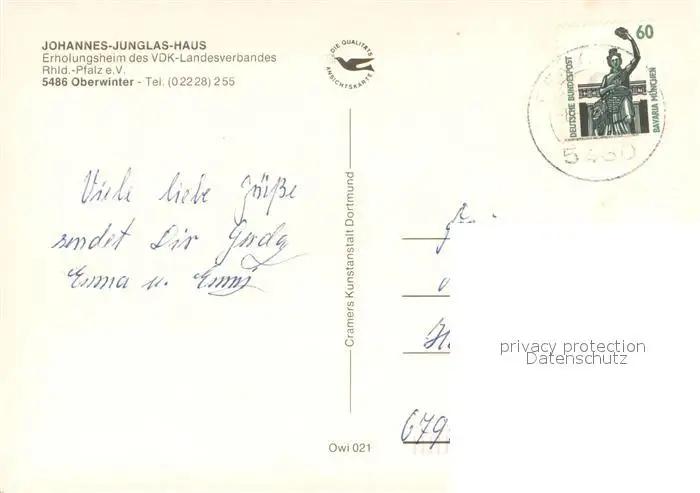 JOHANNES-JUNGLAS-HAUS
Erholungsheim des VDK-Landesverbandes
Rhld.-Pfalz e.V.
5486 Oberwinter - Tel. (0 22 28) 2 55
DIE QUALITÄTS
ANSICHTSKARTE
60
DEUTSCHE BUNDESPOST
BAVARIA MÜNCHEN
Viele liebe Grüße
sendet Dir Gerda
Emma u.
Cramers Kunstanstalt Dortmund
privacy protection
Datenschutz
679
Owi 021